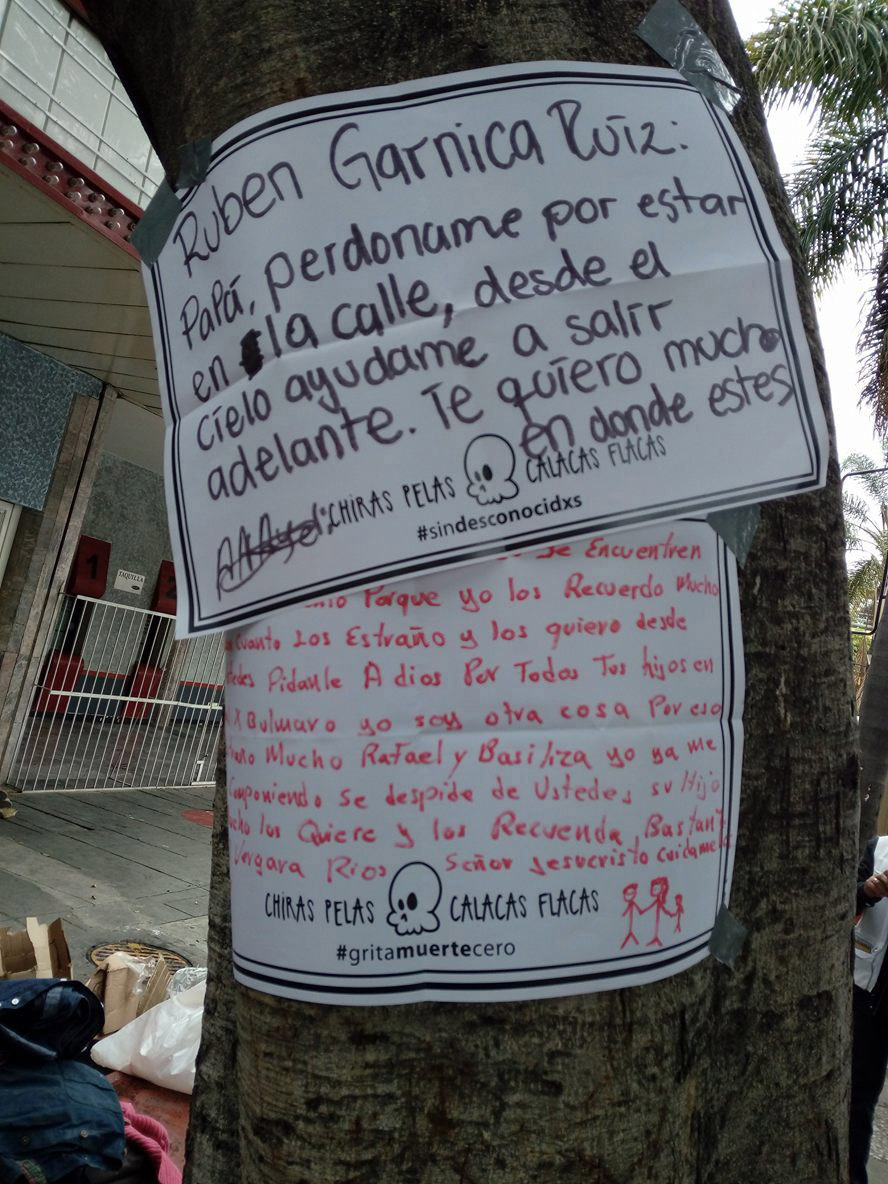 Ruben Garnica Ruiz:
Papá, perdoname por estar
en la calle, desde el
cielo ayudame a salir
adelante. Te quiero mucho
en donde estes
CHIRAS PELAS CALACAS FLACAS
#sindesconocidxs
se Encuentren
Porque yo los Recuerdo Mucho
cuanto Los Estraño y los quiero desde
Pidanle A dios Por Todos Tus hijos en
Bulmaro yo soy otra cosa Por eso
Mucho Rafael y Basiliza yo ya me
Componiendo se despide de Ustedes su Hijo
los Quiere y los Recuenda Bastant
Vergara Rios Señor Jesucristo cuidame
CHIRAS PELAS CALACAS FLACAS
#gritamuertecero
1
TAQUILLA
2